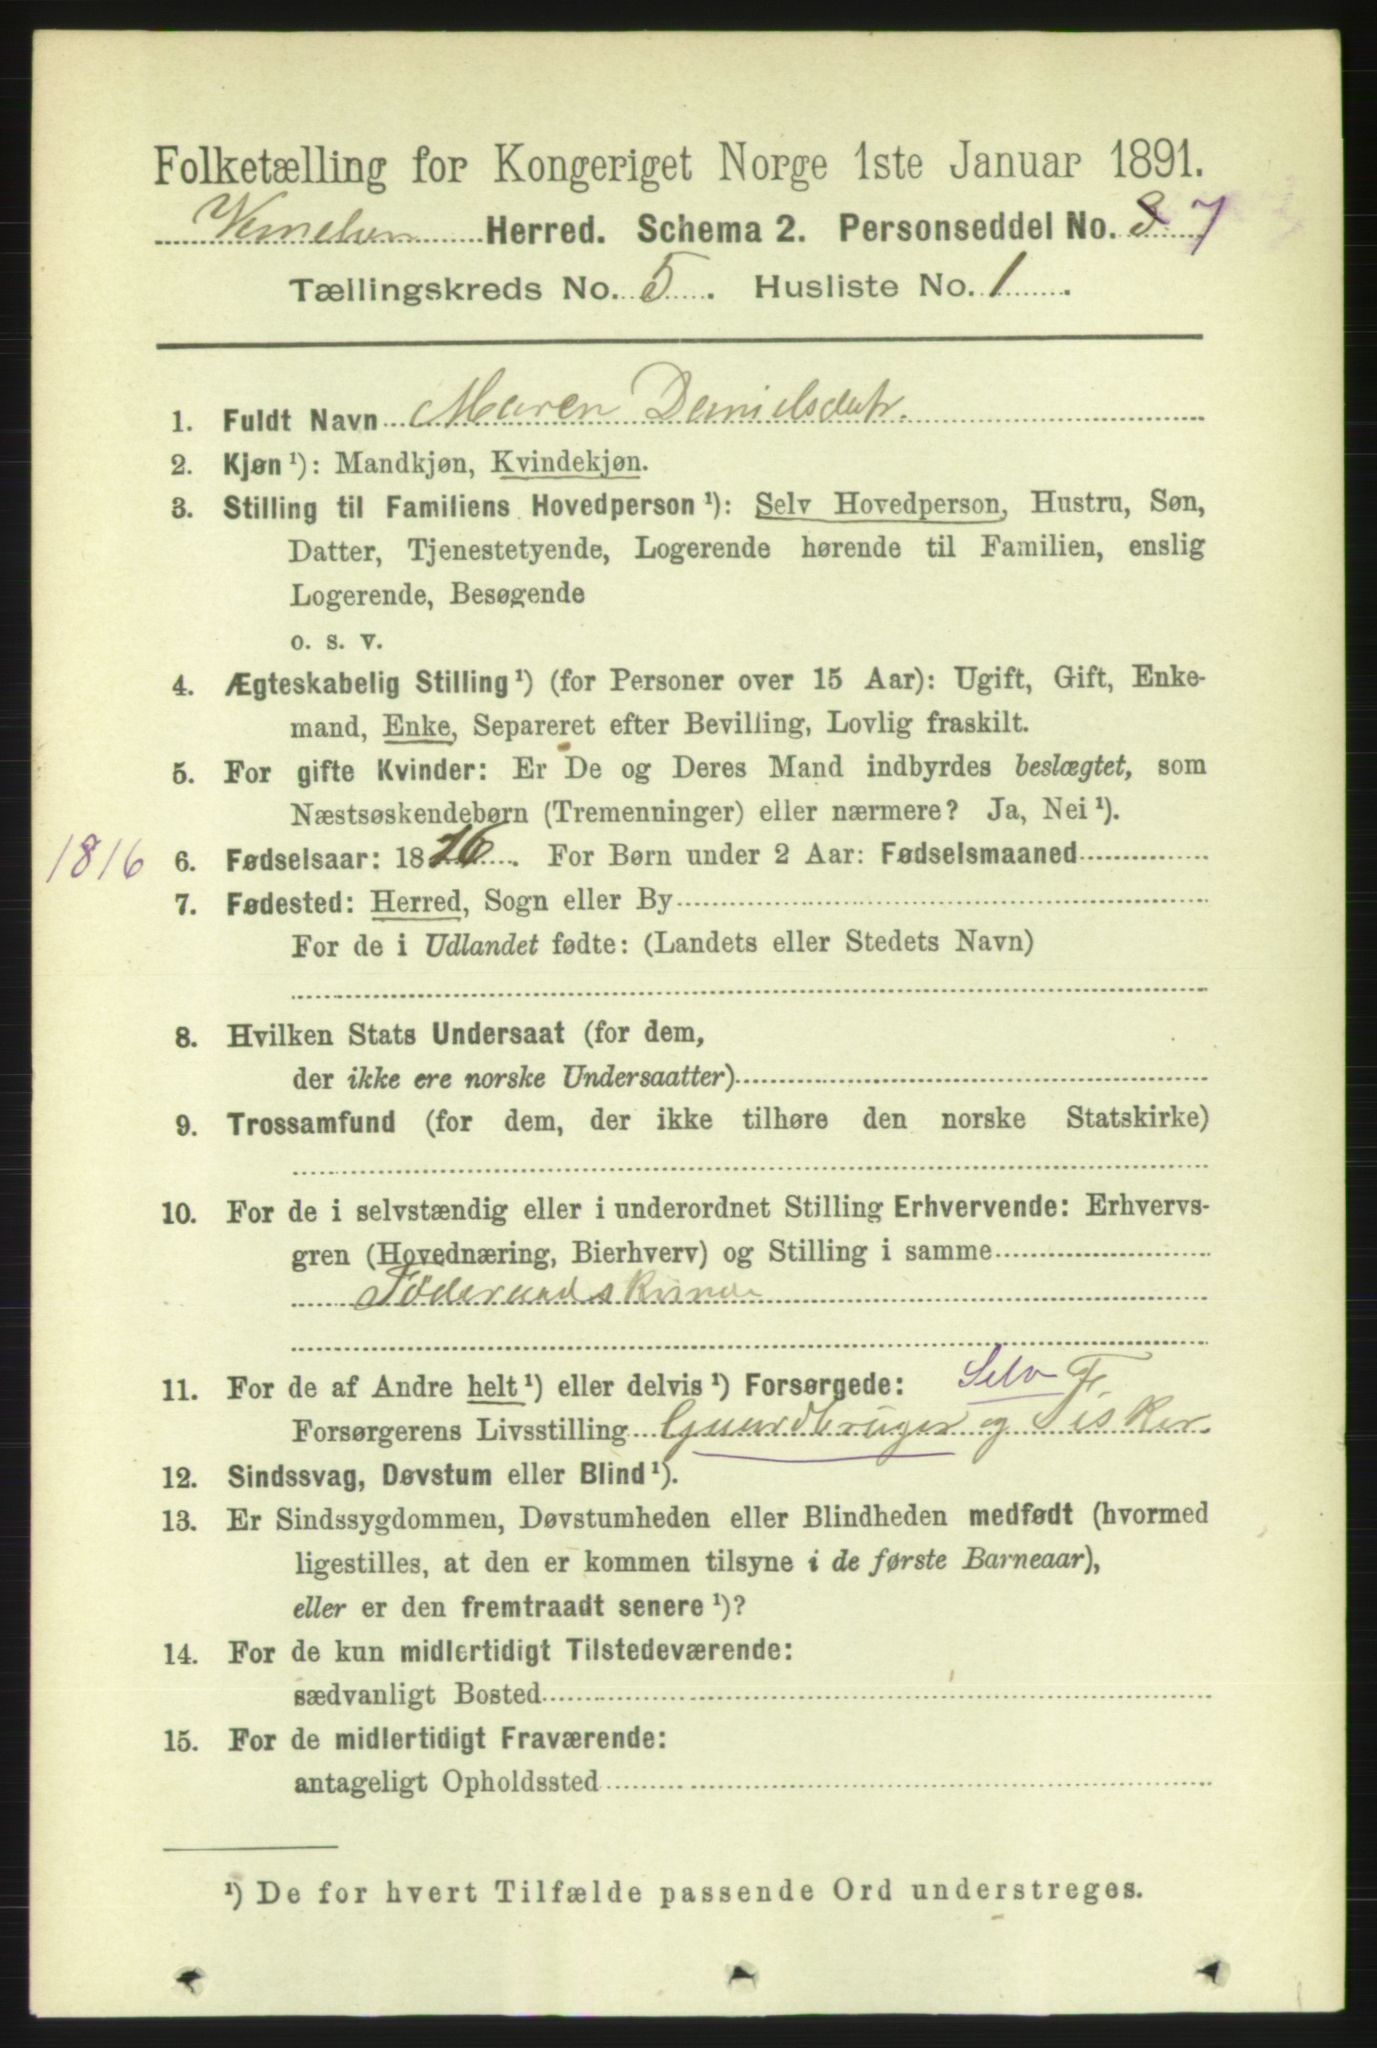 Folketælling for Kongeriget Norge 1ste Januar 1891.
Herred. Schema 2. Personseddel No. 8 7
Tællingskreds No. 5. Husliste No. 1.
1. Fuldt Navn Maren Danielsdatr.
2. Kjøn ¹): Mandkjøn, Kvindekjøn.
3. Stilling til Familiens Hovedperson ¹): Selv Hovedperson, Hustru, Søn,
Datter, Tjenestetyende, Logerende hørende til Familien, enslig
Logerende, Besøgende
o. s. v.
4. Ægteskabelig Stilling ¹) (for Personer over 15 Aar): Ugift, Gift, Enke-
mand, Enke, Separeret efter Bevilling, Lovlig fraskilt.
5. For gifte Kvinder: Er De og Deres Mand indbyrdes beslægtet, som
Næstsøskendebørn (Tremenninger) eller nærmere? Ja, Nei ¹).
1816 6. Fødselsaar: 1816. For Børn under 2 Aar: Fødselsmaaned
7. Fødested: Herred, Sogn eller By
For de i Udlandet fødte: (Landets eller Stedets Navn)
8. Hvilken Stats Undersaat (for dem,
der ikke ere norske Undersaatter)
9. Trossamfund (for dem, der ikke tilhøre den norske Statskirke)
10. For de i selvstændig eller i underordnet Stilling Erhvervende: Erhvervs-
gren (Hovednæring, Bierhverv) og Stilling i samme
Föderaadskvinde
11. For de af Andre helt ¹) eller delvis ¹) Forsørgede: Selv F.
Forsørgerens Livsstilling Gaardbruger og Fisker.
12. Sindssvag, Døvstum eller Blind ¹).
13. Er Sindssygdommen, Døvstumheden eller Blindheden medfødt (hvormed
ligestilles, at den er kommen tilsyne i de første Barneaar),
eller er den fremtraadt senere ¹)?
14. For de kun midlertidigt Tilstedeværende:
sædvanligt Bosted
15. For de midlertidigt Fraværende:
antageligt Opholdssted
¹) De for hvert Tilfælde passende Ord understreges.